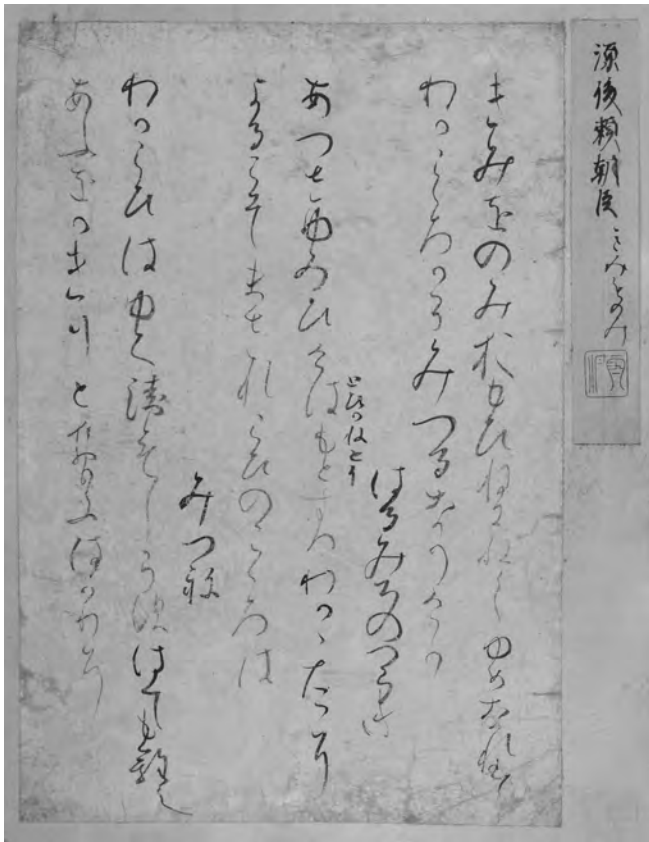 源俊頼朝臣 きみをのみ
きみをのみおもひねにねしゆめなれは
わかこゝろからみつるなりけり
はるみちのつらき
あつさゆみひけはもとすゑわかゝたに
よるこそまされこひのこゝろは
みつね
わかこひはゆくへもしらすはてもなし
あふをかきりとおもふはかりそ